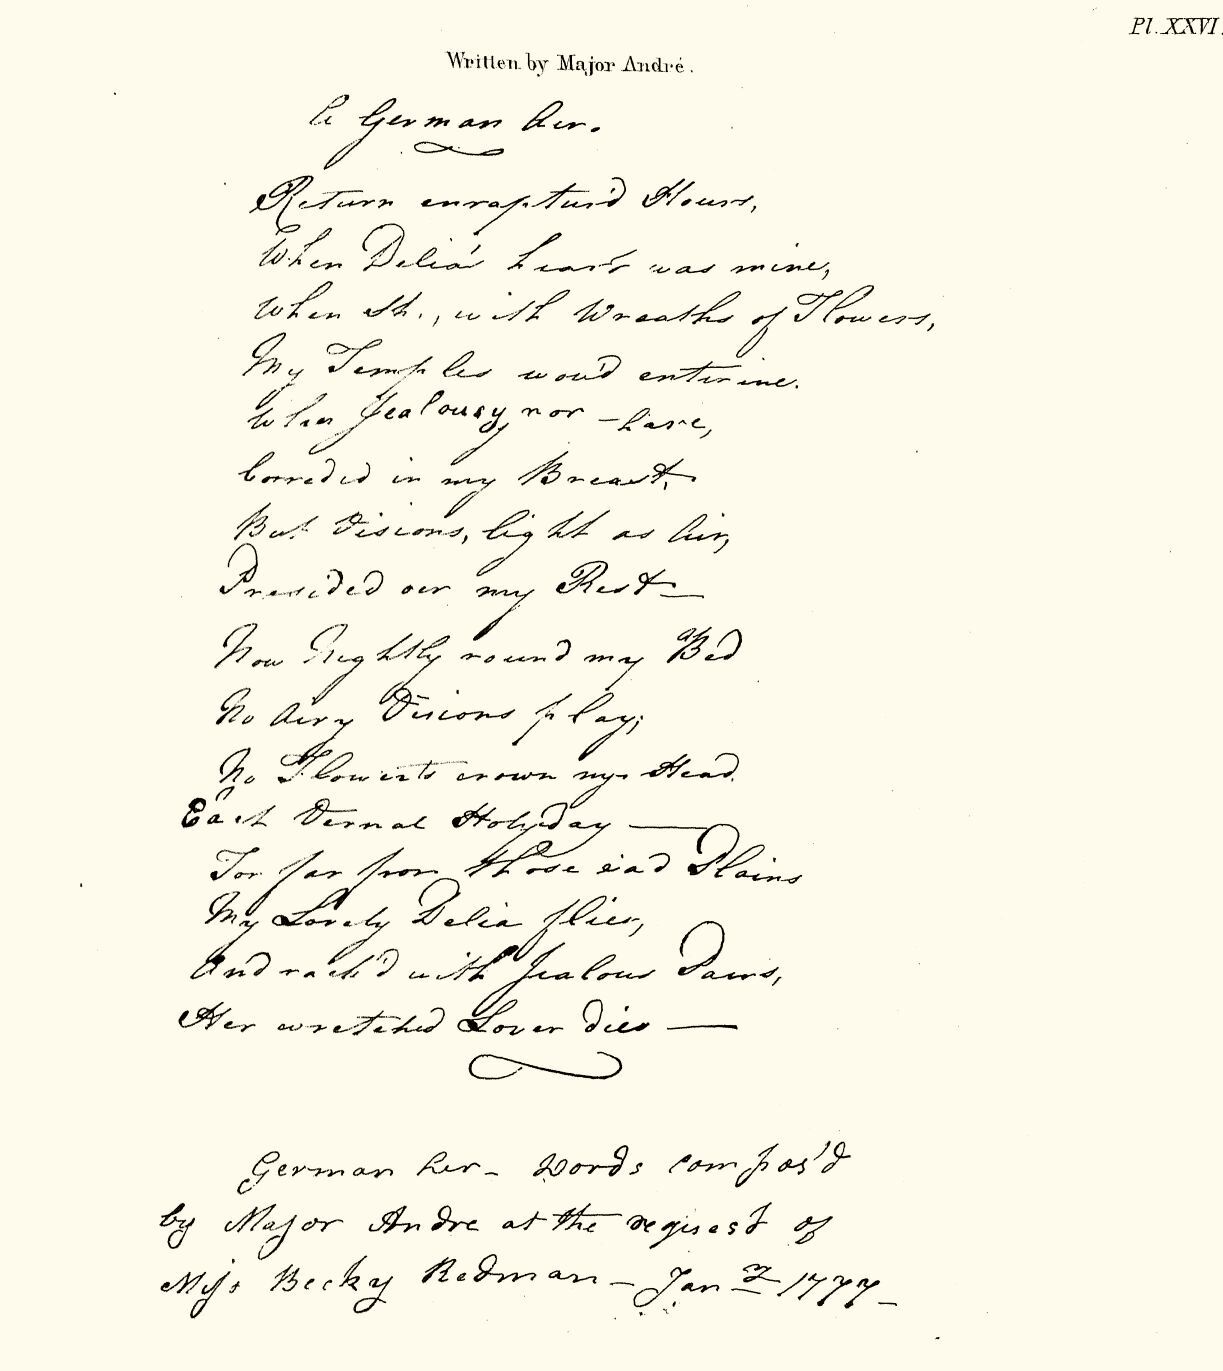 Pl. XXVI.
Written by Major André.
A German Air.
Return enraptur'd Hours,
When Delia's heart was mine,
When She, with Wreaths of Flowers,
My Temples wou'd entwine.
When Jealousy nor Care,
Corroded in my Breast,
But Visions, light as Air,
Presided oer my Rest—
Now Nightly round my Bed
No Airy Visions play;
No Flow'rets crown my Head
Each Vernal Holyday —
For far from those sad Plains
My Lovely Delia flies,
And rack'd with Jealous Pains,
Her wretched Lover dies —
German Air— Words compos'd
by Major Andre at the request of
Miss Becky Redman — Jany 1777—